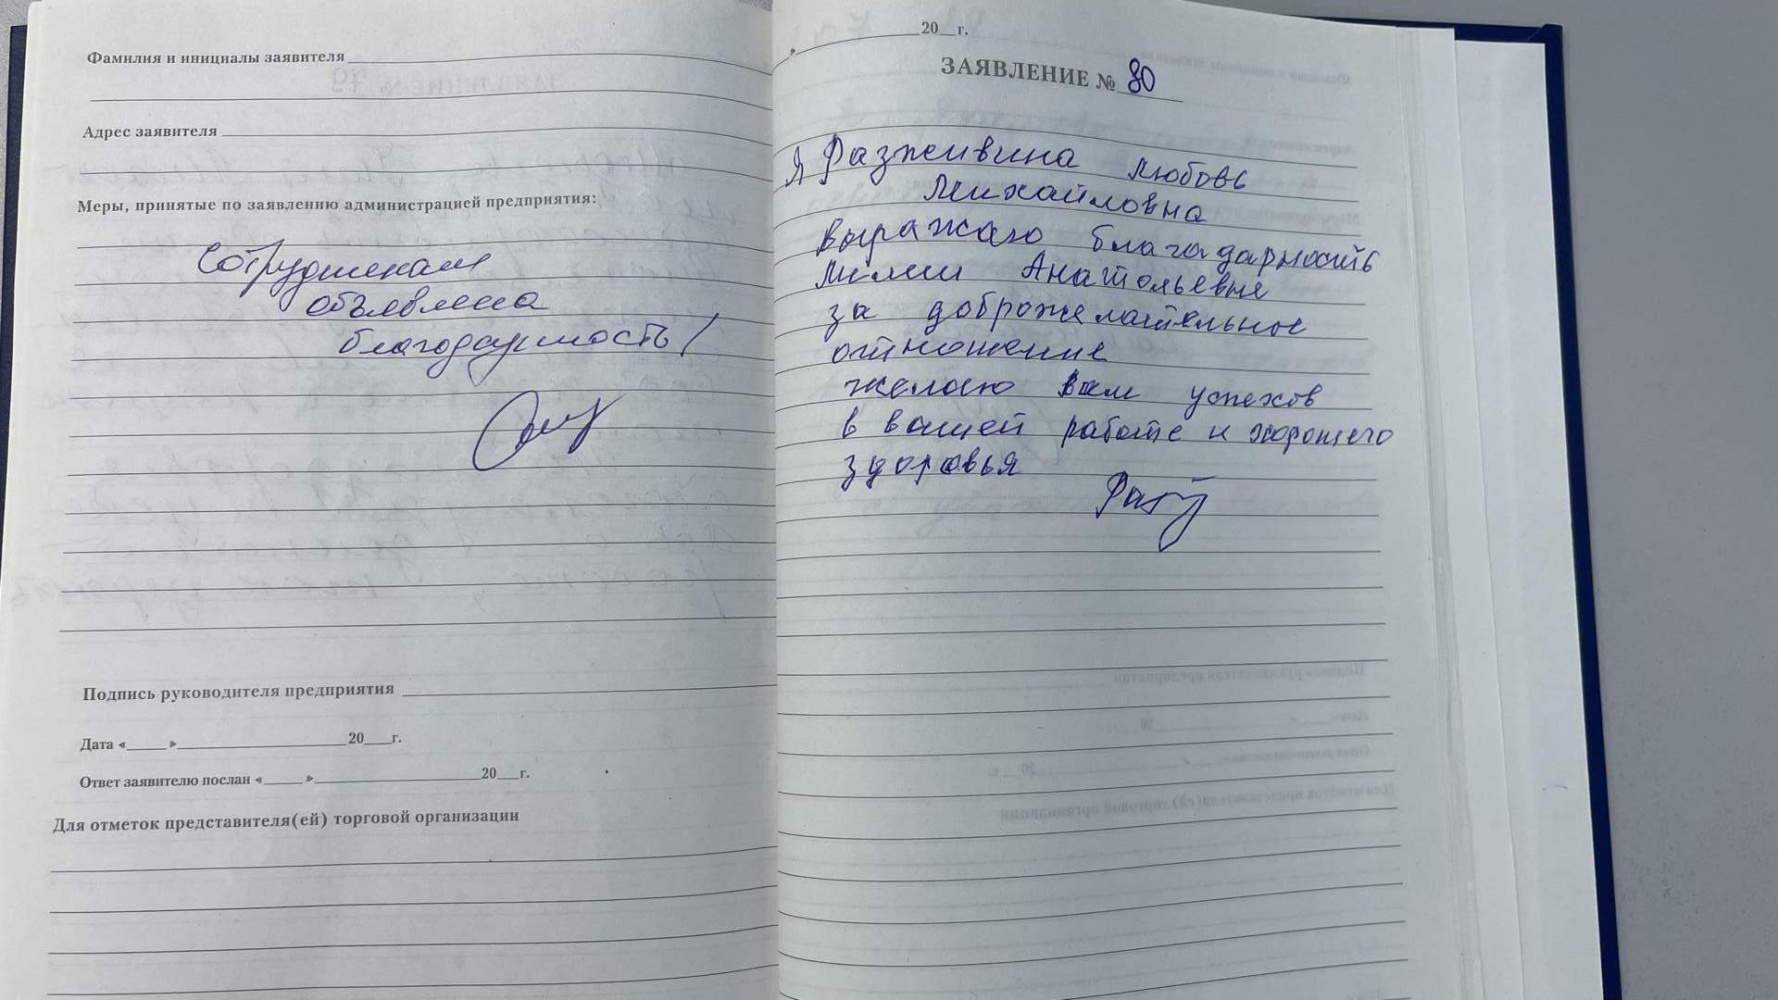 Фамилия и инициалы заявителя
Адрес заявителя
Меры, принятые по заявлению администрацией предприятия:
Сотрудникам
объявлена
благодарность!
Подпись руководителя предприятия
Дата «____»____20__г.
Ответ заявителю послан «____»____20__г.
Для отметок представителя(ей) торговой организации
____20__г.
ЗАЯВЛЕНИЕ № 80
Я Разживина Любовь
Михайловна
выражаю благодарность
Лилии Анатольевне
за доброжелательное
отношение
желаю Вам успехов
в вашей работе и хорошего
здоровья